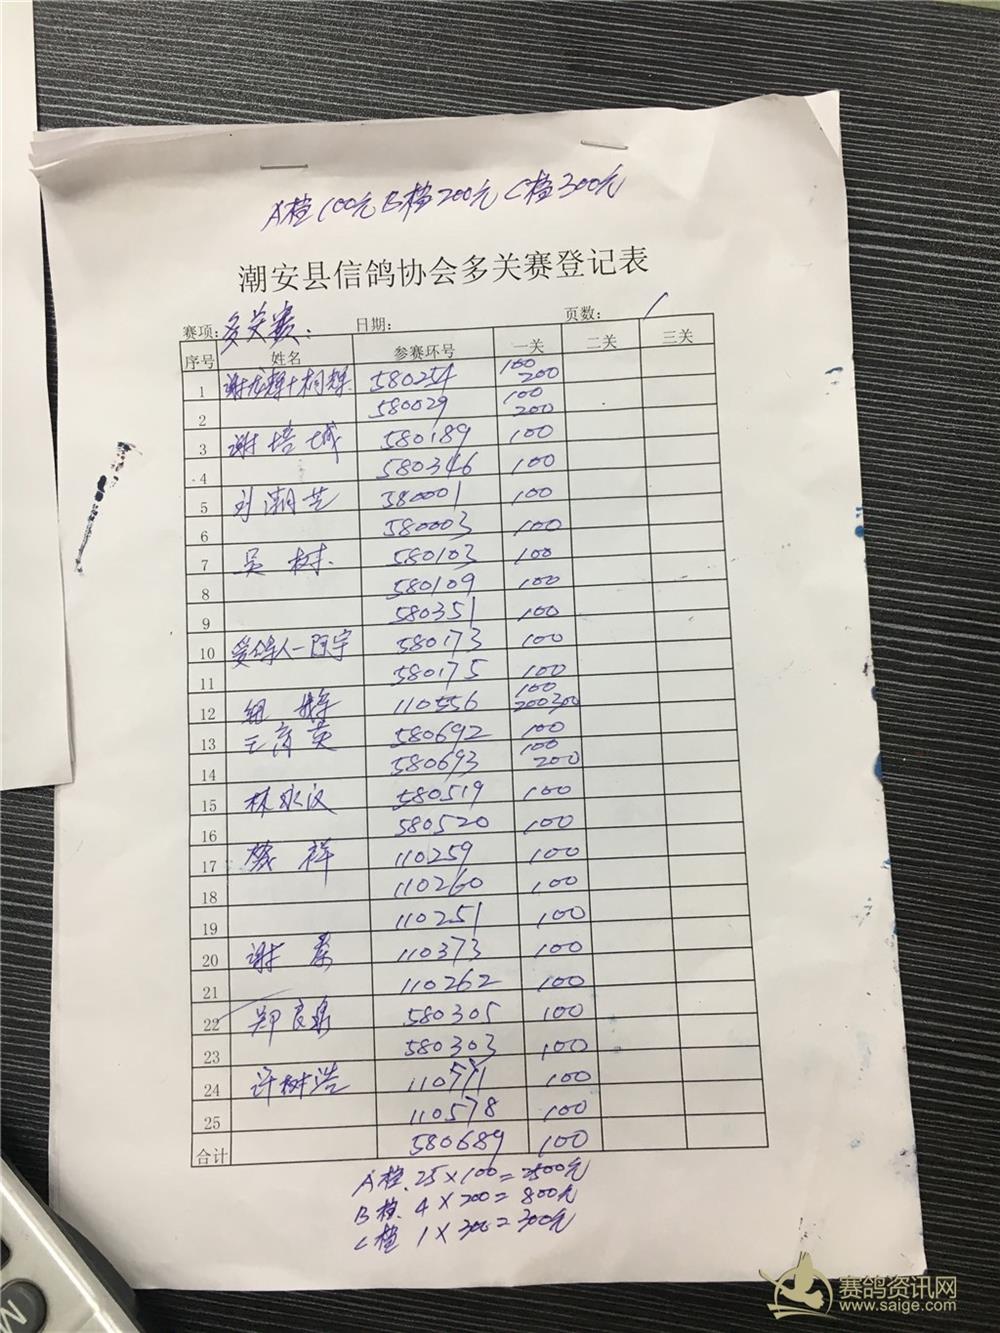 A档100元 B档200元 C档300元
潮安县信鸽协会多关赛登记表
赛项: 多关赛. 日期: 页数: 1
序号 姓名 参赛环号 一关 二关 三关
1 谢龙辉+桐辉 580254 100 200
2 580029 100 200
3 谢培城 580189 100
4 580346 100
5 刘潮芝 580001 100
6 580003 100
7 吴树. 580103 100
8 580109 100
9 580351 100
10 爱鸽人一阿宇 580173 100
11 580175 100
12 110556 100 200 300
13 王育英 580692 100
14 580693 100 200
15 林永汉 580519 100
16 580520 100
17 祥 110259 100
18 110260 100
19 110251 100
20 谢 110373 100
21 110262 100
22 郑良 580305 100
23 580303 100
24 许树浩 110571 100
25 110578 100
合计 580689 100
A档. 25×100=2500元
B档. 4×200=800元
C档 1×300=300元
赛鸽资讯网
www.saige.com